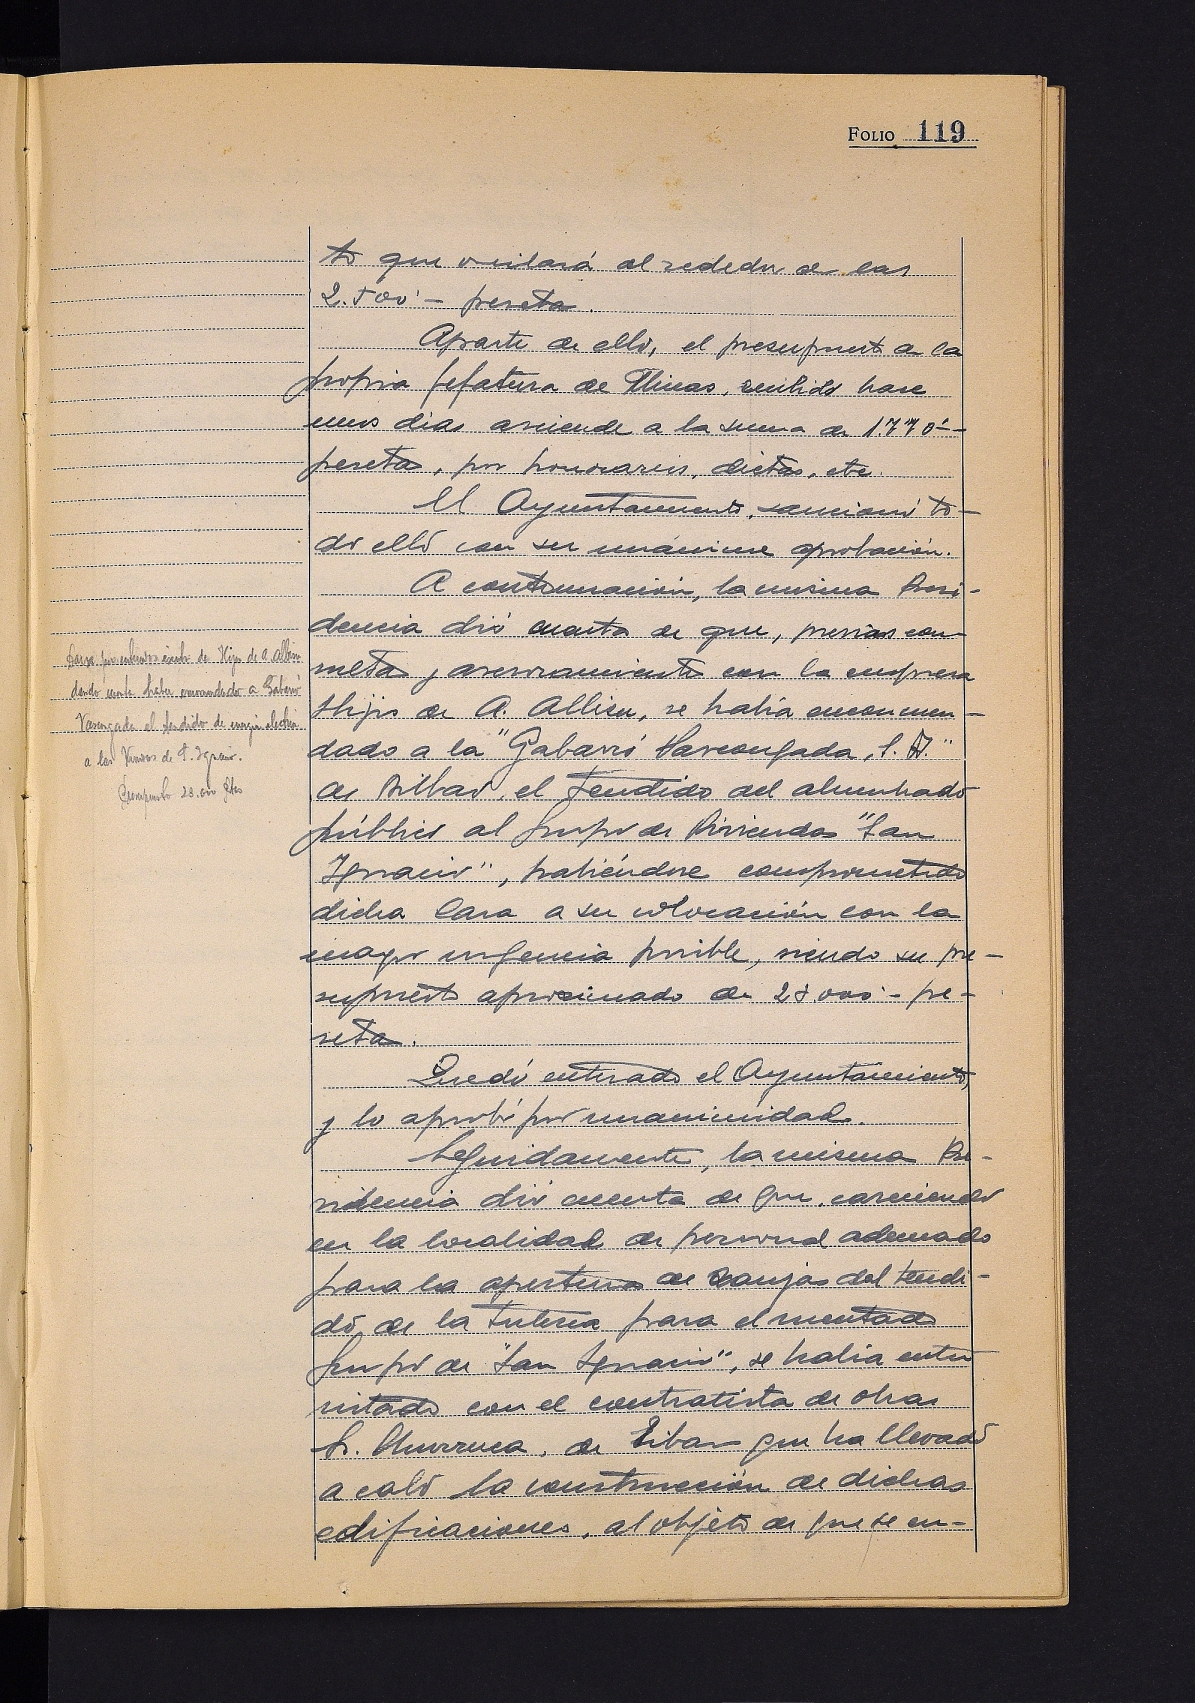 FOLIO 119
to que oscilará al rededor de las
2.500'- pesetas.
Aparte de ello, el presupuesto de la
propia Jefatura de Minas, recibido hace
unos días asciende a la suma de 1.770'-
pesetas, por honorarios, dietas, etc.
El Ayuntamiento, sancionó to-
do ello con su unánime aprobación.
A continuación, la misma Presi-
dencia dió cuenta de que, previas con-
sultas y asesoramiento con la empresa
Hijos de A. Allisu, se había encomen-
dado a la "Gabarró Vascongada, S. A."
de Bilbao, el tendido del alumbrado
público al Grupo de Viviendas "San
Ignacio", habiéndose comprometido
dicha Casa a su colocación con la
mayor urgencia posible, siendo su pre-
supuesto aproximado de 28.000'- pe-
setas.
Quedó enterado el Ayuntamiento,
y lo aprobó por unanimidad.
Seguidamente, la misma Pre-
sidencia dió cuenta de que, careciendo
en la localidad de personal adecuado
para la apertura de zanjas del tendi-
do de la tubería para el mentado
Grupo de "San Ignacio", se había entre
vistado con el contratista de obras
Sr. Churruca, de Eibar que ha llevado
a cabo la construcción de dichas
edificaciones, al objeto de que se en-
Darse por enterados escrito de Hijos de A. Allisu
dando cuenta haber encomendado a Gabarró
Vascongada el tendido de energía eléctrica
a las Viviendas de S. Ignacio.
Presupuesto 28.000 Ptas